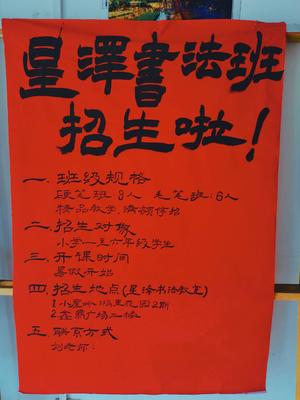 星澤書法班
招生啦！
一.班级规格
硬笔班:8人 毛笔班:6人
精品教学,满额停招
二.招生对象
小学一至六年级学生
三.开课时间
暑假开始
四.招生地点(星泽书法教室)
1.小屋 花园2期
2.鑫鼎广场二楼
五.联系方式
刘老师: